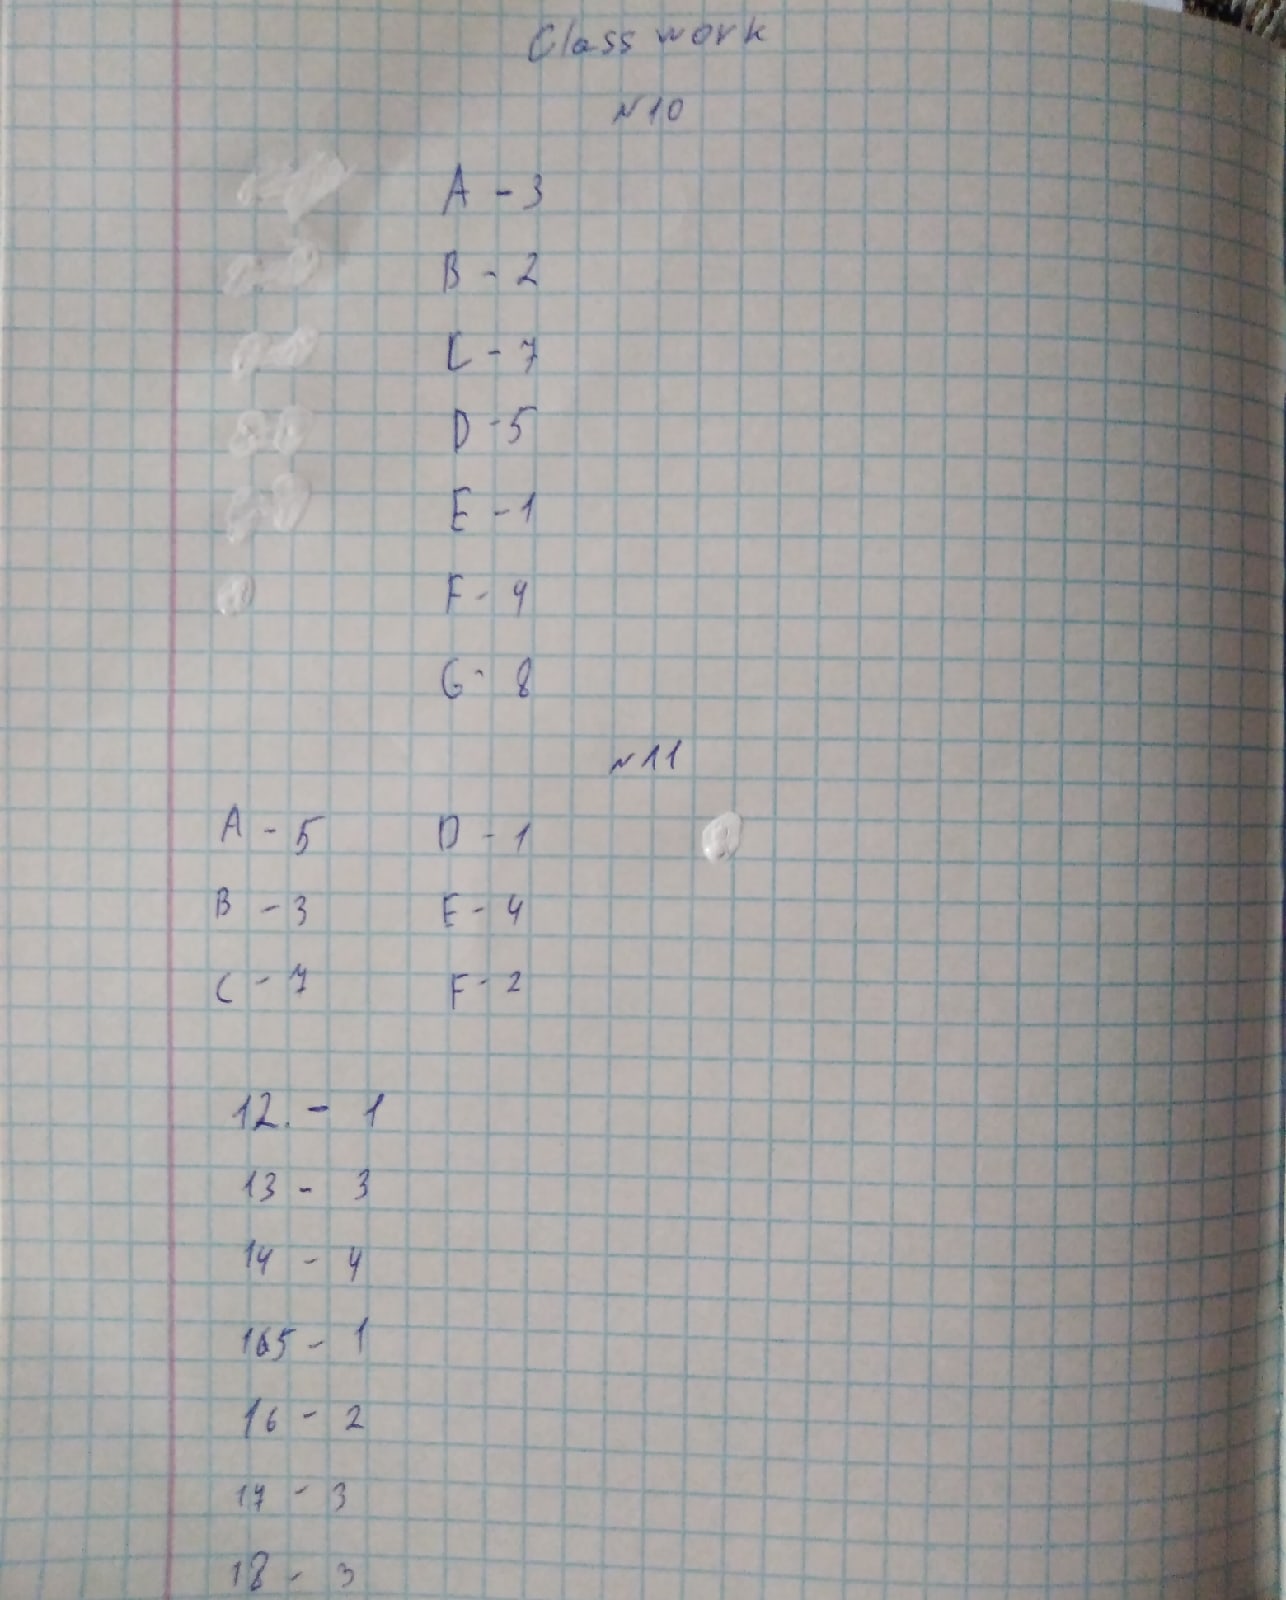 Class work
№10
A - 3
B - 2
C - 7
D - 5
E - 1
F - 4
G - 8
№11
A - 5 D - 1
B - 3 E - 4
C - 7 F - 2
12. - 1
13 - 3
14 - 4
165 - 1
16 - 2
17 - 3
18 - 3